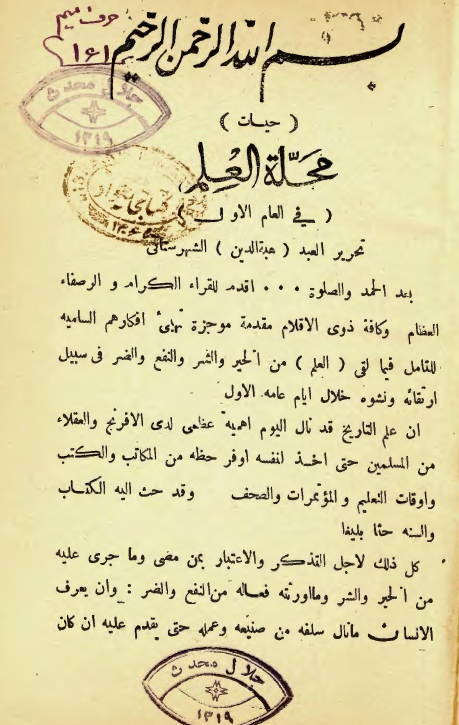 حرف ميم
١٤١
بسم الله الرحمن الرحيم
جلال محدث
١٣١٩
( حيات )
مجلّة العُلِم
( في العام الاول )
تحرير العبد ( هبةالدين ) الشهرستاني
بعد الحمد والصلوة . . . اقدم للقراء الكرام و الرصفاء
العظام وكافة ذوى الاقلام مقدمة موجزة تهيئ افكارهم الساميه
للتامل فيما لقى ( العلم ) من الخير والشر والنفع والضر فى سبيل
ارتقائه ونشوه خلال ايام عامه الاول
ان علم التاريخ قد نال اليوم اهمية عظمى لدى الافرنج والعقلاء
من المسلمين حتى اخذ لنفسه اوفر حظه من المكاتب والكتب
واوقات التعليم و المؤتمرات والصحف وقد حث اليه الكتاب
والسنه حثا بليغا
كل ذلك لاجل التذكر والاعتبار بمن مضى وما جرى عليه
من الخير والشر ومااورثته فعاله من النفع والضر : وان يعرف
الانسان مانال سلفه من صنيعه وعمله حتى يقدم عليه ان كان
جلال محدث
١٣١٩